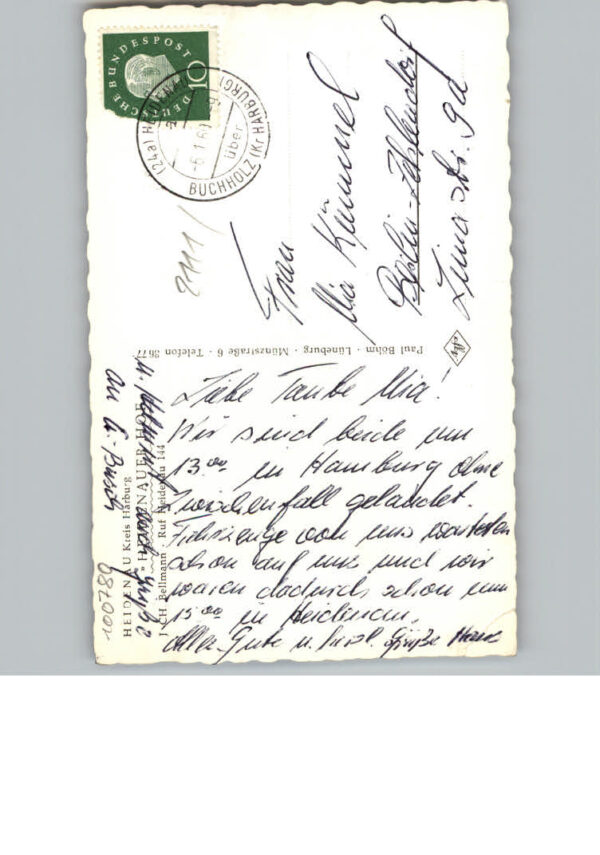 DEUTSCHE BUNDESPOST
10
(24a) HEIDENAU
über
BUCHHOLZ (Kr HARBURG)
-6.1.6
2111/
Frau
Mia Kümmel
Berlin-Zehlendorf
Zinnowstr. 9a
Paul Böhm · Lüneburg · Münzstraße 6 · Telefon 3677
Liebe Tante Mia!
Wir sind beide um
13.00 in Hamburg ohne
Zwischenfall gelandet.
Fahrzeuge von uns warteten
schon auf uns und wir
waren dadurch schon um
15.00 in Heidenau.
Alles Gute u. herzl. Grüße
HEIDENAU Kreis Harburg
HEIDENAUER HOF
J. CH. Bellmann · Ruf Heidenau 144
an
100789